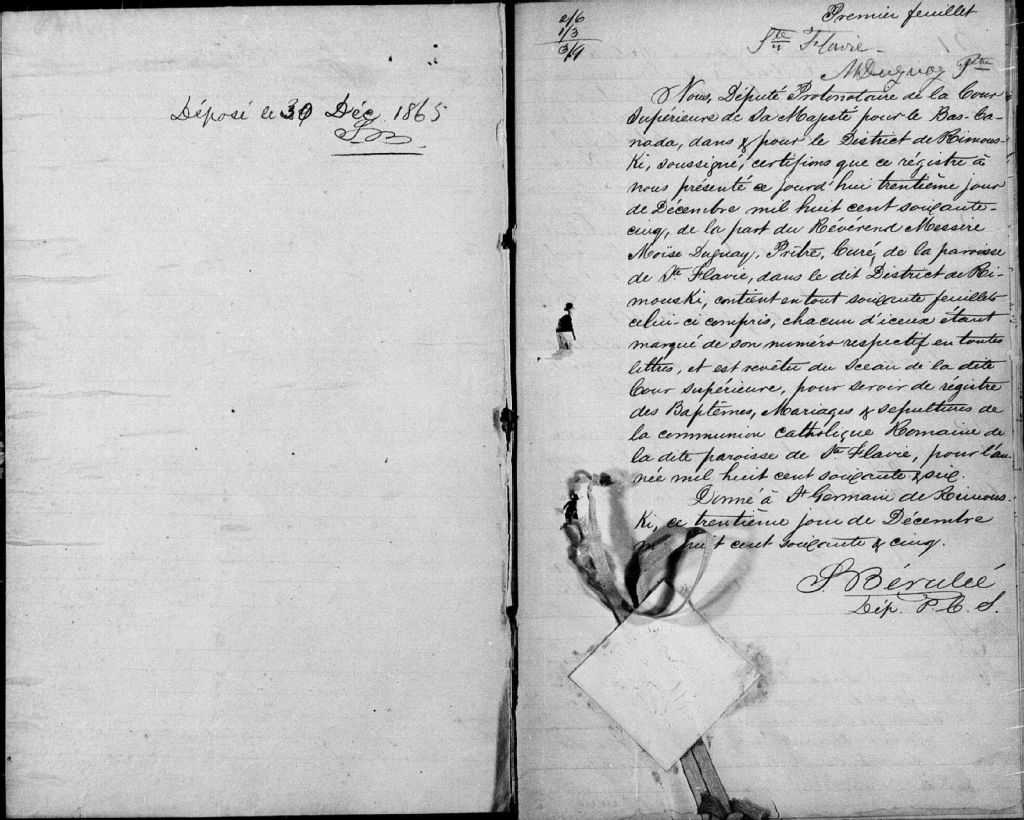 Déposé le 30 Déc 1865
SB
2/6
1/3
3/9
Premier feuillet
Ste Flavie
MDuguay Ptre
Nous, Député Protonotaire de la Cour
Supérieure de Sa Majesté pour le Bas-Ca-
nada, dans & pour le District de Rimous-
Ki, soussigné, certifions que ce régistre à
nous présenté ce jourd'hui trentième jour
de Décembre mil huit cent soixante-
cinq, de la part du Révérend Messire
Moïse Duguay, Prêtre, Curé, de la paroisse
de Ste Flavie, dans le dit District de Ri-
mouski, contient en tout soixante feuillets
celui-ci compris, chacun d'iceux étant
marqué de son numéro respectif en toutes
lettres, et est revêtu du Sceau de la dite
Cour Supérieure, pour servir de régistre
des Baptêmes, Mariages & sépultures de
la communion catholique Romaine de
la dite paroisse de Ste Flavie, pour l'an-
née mil huit cent soixante & six.
Donné à St Germain de Rimous-
Ki, ce trentième jour de Décembre
mil huit cent soixante & cinq.
Dép. P. C. S.